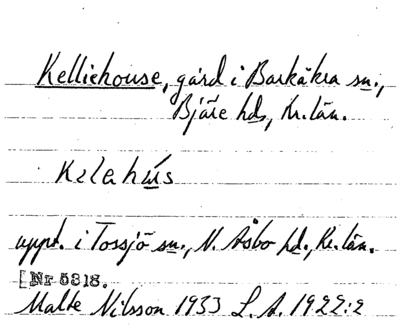 Kelliehouse, gård i Barkåkra sn.,
Bjäre hd., Kr. län.
Kelahús
uppt. i Tossjö sn., N. Åsbo hd., Kr. län.
[Nr 5818.
Malte Nilsson 1933 L.A. 1922:2